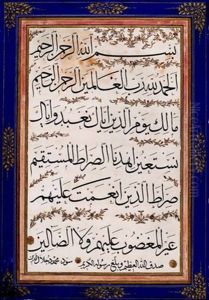 بسم الله الرحمن الرحيم
الحمد لله رب العالمين الرحمن الرحيم
مالك يوم الدين اياك نعبد واياك
نستعين اهدنا الصراط المستقيم
صراط الذين انعمت عليهم
غير المغضوب عليهم ولا الضالين
صدق الله العظيم وبلغ رسوله الكريم